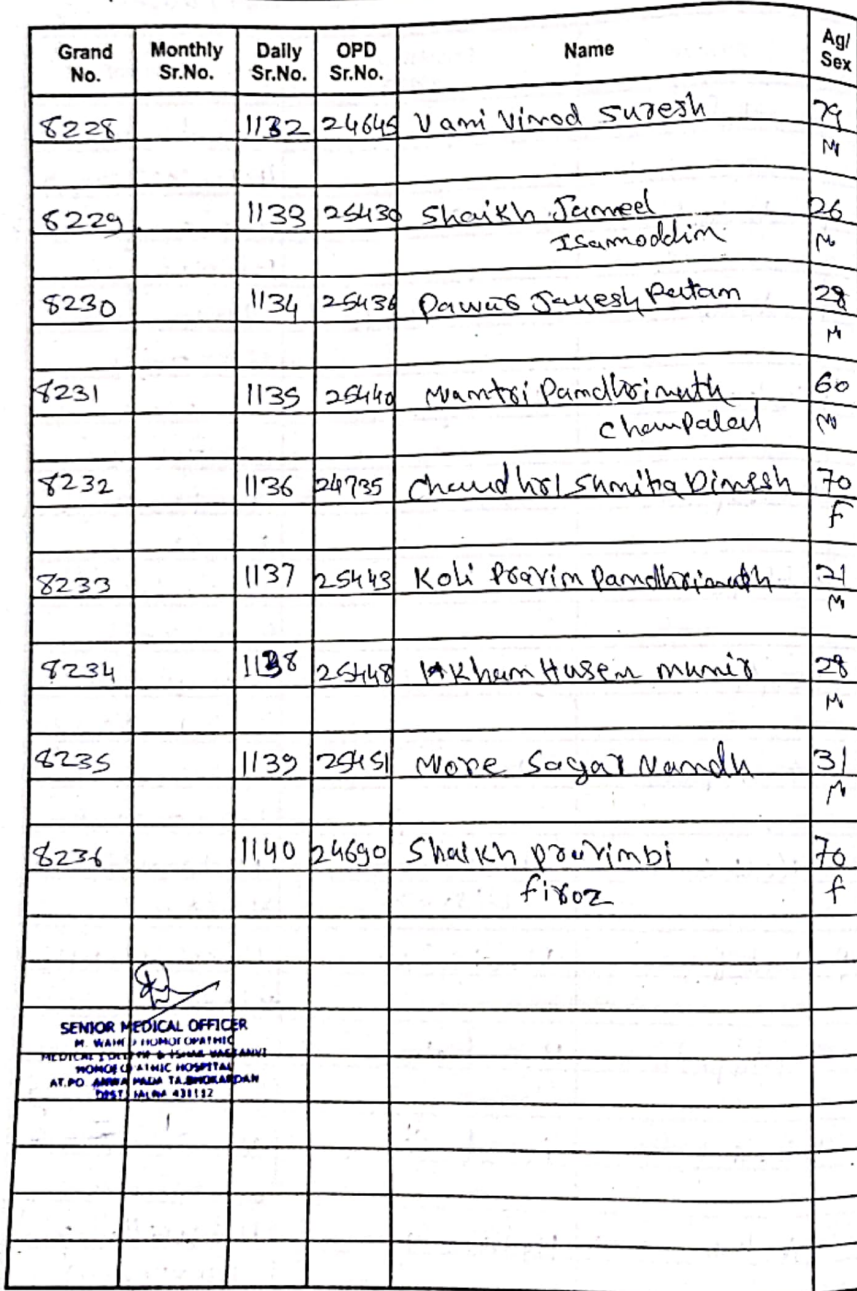 Grand No. Monthly Sr.No. Daily Sr.No. OPD Sr.No. Name Ag/ Sex
8228 1132 24645 Vani Vinod Suresh
M
8229 1133 25430 Shaikh Jameel 26
Isamoddin M
8230 1134 25436 Pawar Jayesh 28
M
8231 1135 25440 Mantri Pandhrinath 60
Champalal M
8232 1136 24735 Dinesh 70
f
8233 1137 25443 Koli Pravin Pandhrinath 21
M
8234 1138 25448 Khan Husen munir 28
M
8235 1139 25451 More Sagar Nandu 31
M
8236 1140 24690 Shaikh 70
firoz f
SENIOR MEDICAL OFFICER
HOSPITAL
AT.PO TA.BHOKARDAN